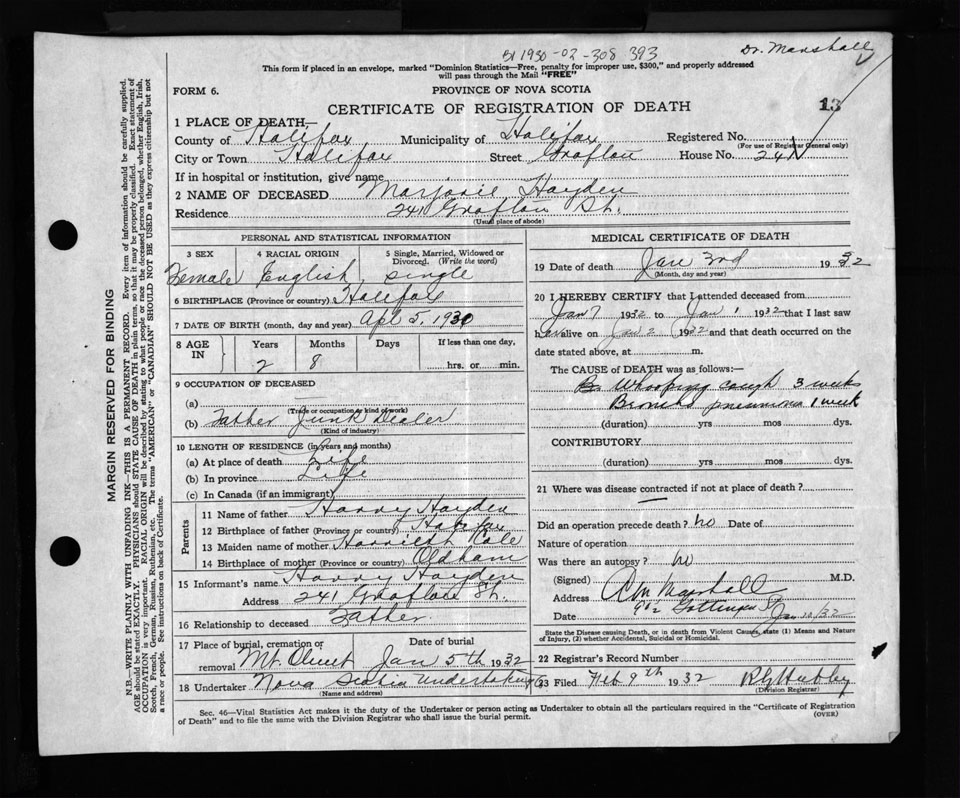 51 1930-02-308 393
Dr. Marshall
This form if placed in an envelope, marked "Dominion Statistics—Free, penalty for improper use, $300," and properly addressed
will pass through the Mail "FREE"
FORM 6. PROVINCE OF NOVA SCOTIA
CERTIFICATE OF REGISTRATION OF DEATH 13
1 PLACE OF DEATH,—
County of Halifax Municipality of Halifax Registered No.
(For use of Registrar General only)
City or Town Halifax Street Grafton House No. 241
If in hospital or institution, give name
2 NAME OF DECEASED Marjorie Hayden
Residence 241 Grafton St.
(Usual place of abode)
PERSONAL AND STATISTICAL INFORMATION
3 SEX 4 RACIAL ORIGIN 5 Single, Married, Widowed or
Divorced. (Write the word)
Female English single
6 BIRTHPLACE (Province or country) Halifax
7 DATE OF BIRTH (month, day and year) Apl 5, 1930
8 AGE IN Years Months Days If less than one day,
2 8 hrs. or min.
9 OCCUPATION OF DECEASED
(a)
(Trade or occupation or kind of work)
(b) Father Junk Dealer
(Kind of industry)
10 LENGTH OF RESIDENCE (in years and months)
(a) At place of death Life
(b) In province Life
(c) In Canada (if an immigrant)
Parents
11 Name of father Harry Hayden
12 Birthplace of father (Province or country) Halifax
13 Maiden name of mother Harriett Cole
14 Birthplace of mother (Province or country) Oldham
15 Informant's name Harry Hayden
Address 241 Grafton St.
16 Relationship to deceased Father
17 Place of burial, cremation or Date of burial
removal Mt. Olivet Jan 5th 1932
18 Undertaker Nova Scotia Undertaking Co
(Name and address)
MEDICAL CERTIFICATE OF DEATH
19 Date of death Jan 3rd 1932
(Month, day and year)
20 I HEREBY CERTIFY that I attended deceased from
Jan 1932 to Jan 1 1932 that I last saw
alive on Jan 2 1932 and that death occurred on the
date stated above, at m.
The CAUSE OF DEATH was as follows:—
Whooping cough 3 weeks
Broncho pneumonia 1 week
(duration) yrs mos dys.
CONTRIBUTORY
(duration) yrs. mos. dys.
21 Where was disease contracted if not at place of death?
Did an operation precede death? no Date of
Nature of operation
Was there an autopsy? no
(Signed) Marshall M.D.
Address Gottingen St
Date Jan /32
State the Disease causing Death, or in death from Violent Causes, state (1) Means and Nature
of Injury, (2) whether Accidental, Suicidal or Homicidal.
22 Registrar's Record Number
23 Filed Feb 9th 1932 Hubley
(Division Registrar)
Sec. 46—Vital Statistics Act makes it the duty of the Undertaker or person acting as Undertaker to obtain all the particulars required in the "Certificate of Registration
of Death" and to file the same with the Division Registrar who shall issue the burial permit. (OVER)
MARGIN RESERVED FOR BINDING
N.B.—WRITE PLAINLY WITH UNFADING INK—THIS IS A PERMANENT RECORD. Every item of information should be carefully supplied.
AGE should be stated EXACTLY. PHYSICIANS should STATE CAUSE OF DEATH in plain terms, so that it may be properly classified. Exact statement of
OCCUPATION is very important. RACIAL ORIGIN will be described by stating to what people or race the deceased person belonged, whether English, Irish,
Scotch, French, German, Russian, Ruthenian, etc. The terms "AMERICAN" or "CANADIAN" SHOULD NOT BE USED as they express citizenship but not
a race or people. See instructions on back of Certificate.